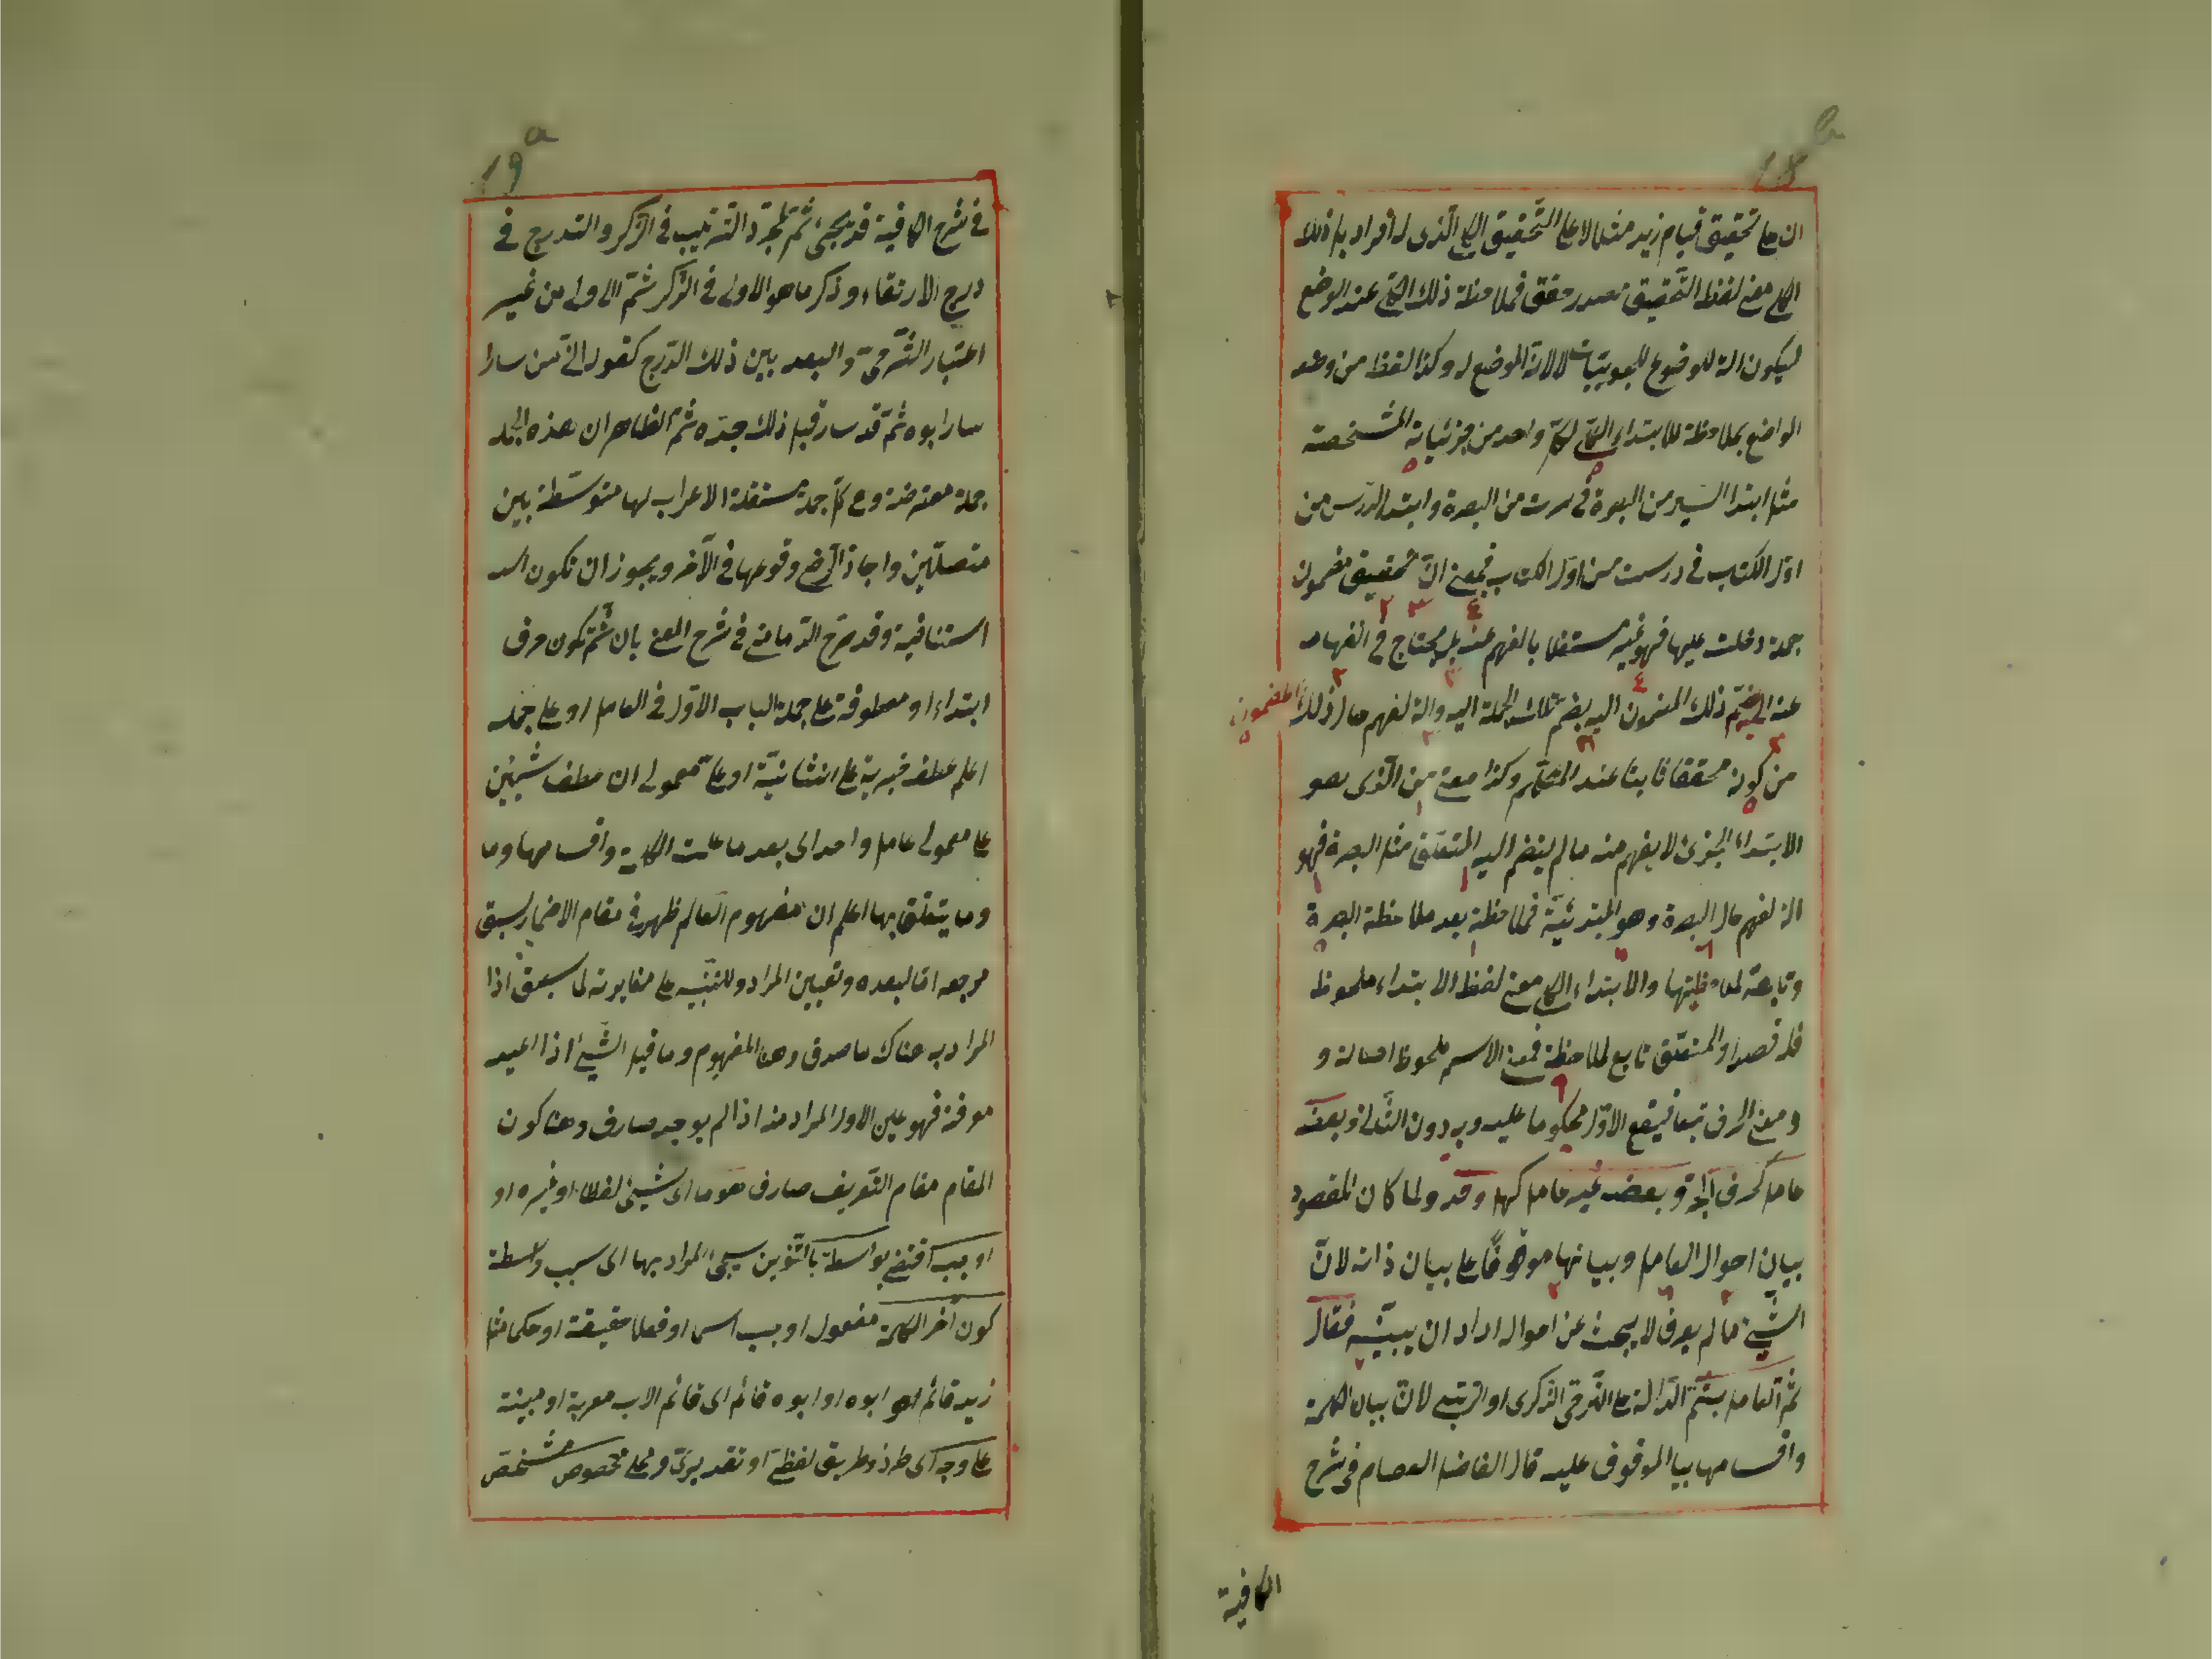 18b
ان على تحقيق قيام زيد مثلا لا على التحقيق الكلى الذى له افراد بل ذلك
الكلى معنى لفظ التحقيق مصدر حقق فملاحظة ذلك الكلى عند الوضع
ليكون آلة للوضوع للجزئيات لا لانه الموضع له وكذا لفظ من وضعه
الواضع بملاحظة للابتداء الكلى لكل واحد من جزئياته المشخصة
مثل ابتدا السير من البصرة فى سرت من البصرة وابتدا الدرس من
اول الكتاب فى درست من اول الكتاب فمعنى ان تحقيق مضمون
جملة دخلت عليها فهو غير مستقل بالفهم عنه بل يحتاج فى انفهامه
عنه الى ضم ذلك المضمون اليه بضم تلك الجملة اليه وآلة لفهم حال ذلك المضمون
من كونه محققا ثابتا عند المتكلم وكذا معنى من الذى هو
الابتداء الجزئى لا يفهم منه ما لم ينضم اليه المتعلق مثل البصرة فهو
آلة لفهم حال البصرة وهو المبتدئية فملاحظته بعد ملاحظة البصرة
وتابعة لملاحظتها والابتداء الكلى معنى لفظ الابتداء ملحوظ
قصدا والمتعلق تابع لملاحظة فمعنى الاسم ملحوظ اصالة و
ومعنى الحرف تبعا فيقع الاول محكوما عليه وبه دون الثانى وبعضه
عامل كحرف الجر وبعضه غير عامل كهل وقد ولما كان المقصود
بيان احوال العامل وبيانها موقوفا على بيان ذاته لان
الشيئ ما لم يعرف لا يبحث عن احواله اراد ان يبينه فقال
ثم العامل بثم الدالة على الترقى الذكرى او الرتبى لان بيان الكلمة
واقسامها بيا الموقوف عليه قال الفاضل العصام فى شرح
الكافية
19a
فى شرح الكافية قد يجئ ثم لمجرد الترتيب فى الذكر والتدرج فى
درج الارتقاء وذكر ما هو الاولى فى الذكر ثم الاولى من غير
اعتبار التراخى والبعد بين ذلك الدرج كقوله ان من سارا
سار ابوه ثم قد سار قبل ذلك جده ثم الظاهر ان هذه الجملة
جملة معترضة وهى كل جملة مستقلة لا اعراب لها متوسطة بين
متصلين واجاز الرضى وقوعها فى الآخر ويجوز ان تكون
استئنافية وقد صرح الدمامنى فى شرح المغنى بان ثم تكون حرف
ابتداء او معطوفة على جملة الباب الاول فى العامل او على جملة
اعلم عطف خبرية على انشائية او على معمولى ان عطف شيئين
على معمولى عامل واحد اى بعد ما علمت الكلمة واقسامها وما
وما يتعلق بها اعلم ان مفهوم العالم ظهر فى مقام الاضمار لسبق
مرجعه اما لبعده وتعيين المراد وللتنبيه على مغايرته لما سبق اذا
المراد به هناك ما صدق وهنا المفهوم وما قيل الشيئ اذا اعيد
معرفة فهو عين الاول المراد منه اذا لم يوجد صارف وهنا كون
المقام مقام التعريف صارف هو ما اى شيئ لفظا او غيره او
اوجب اقتضى بواسطة بالتنوين سيجئ المراد بها اى سبب واسطة
كون آخر الكلمة مفعول اوجب اسما او فعلا حقيقة او حكى مثل
زيد قائم ابوه او ابوه قائم اى قائم الاب معربة او مبنية
على وجه اى طرز وطريق لفظى او تقديرى ومحلى مخصوص مشخص